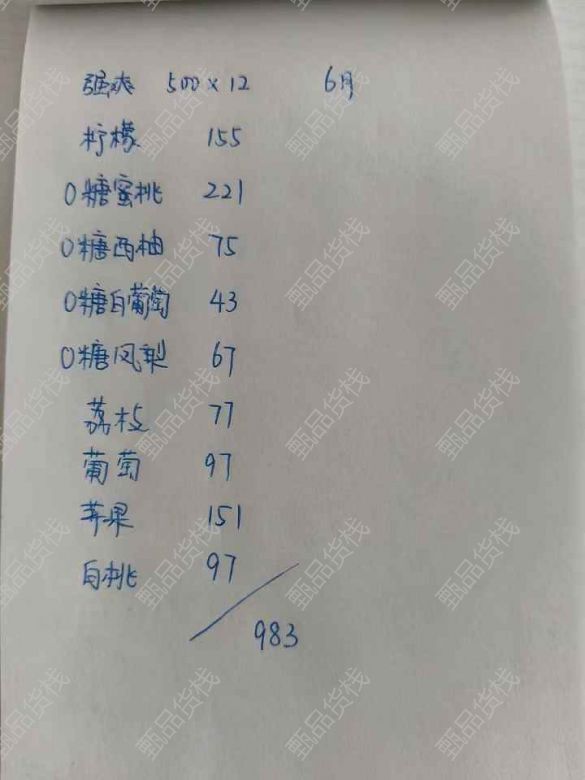 强爽 500×12 6月
柠檬 155
0糖蜜桃 221
0糖西柚 75
0糖白葡萄 43
0糖凤梨 67
荔枝 77
葡萄 97
苹果 151
白桃 97
983
甄品货栈